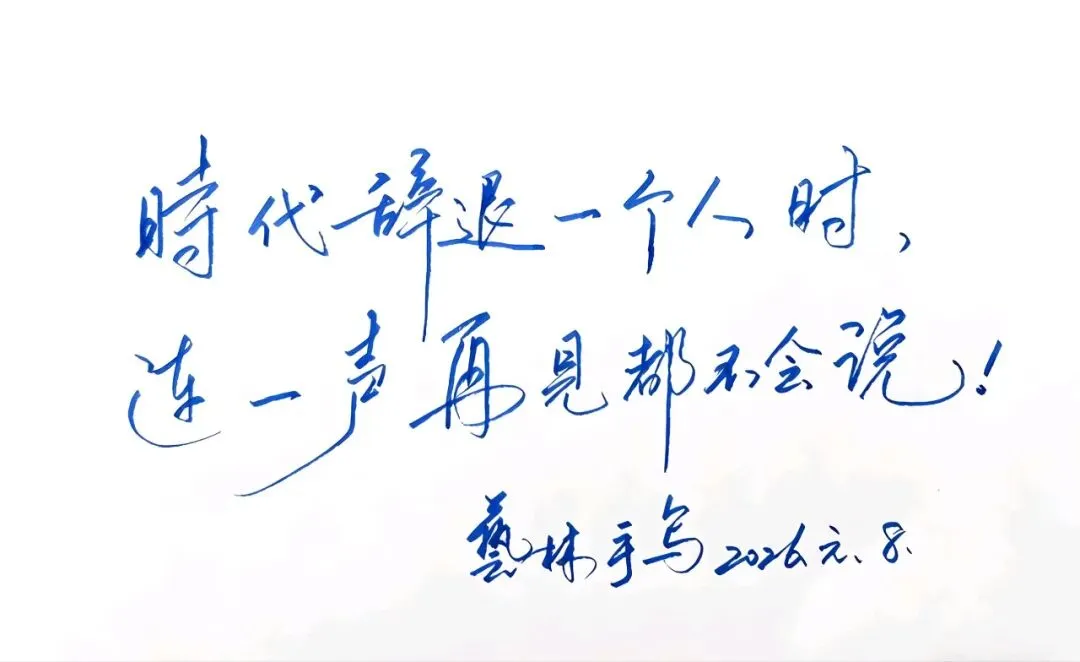 時代辞退一个人时，
连一声再见都不会说！
藝林手写2026.元.8.